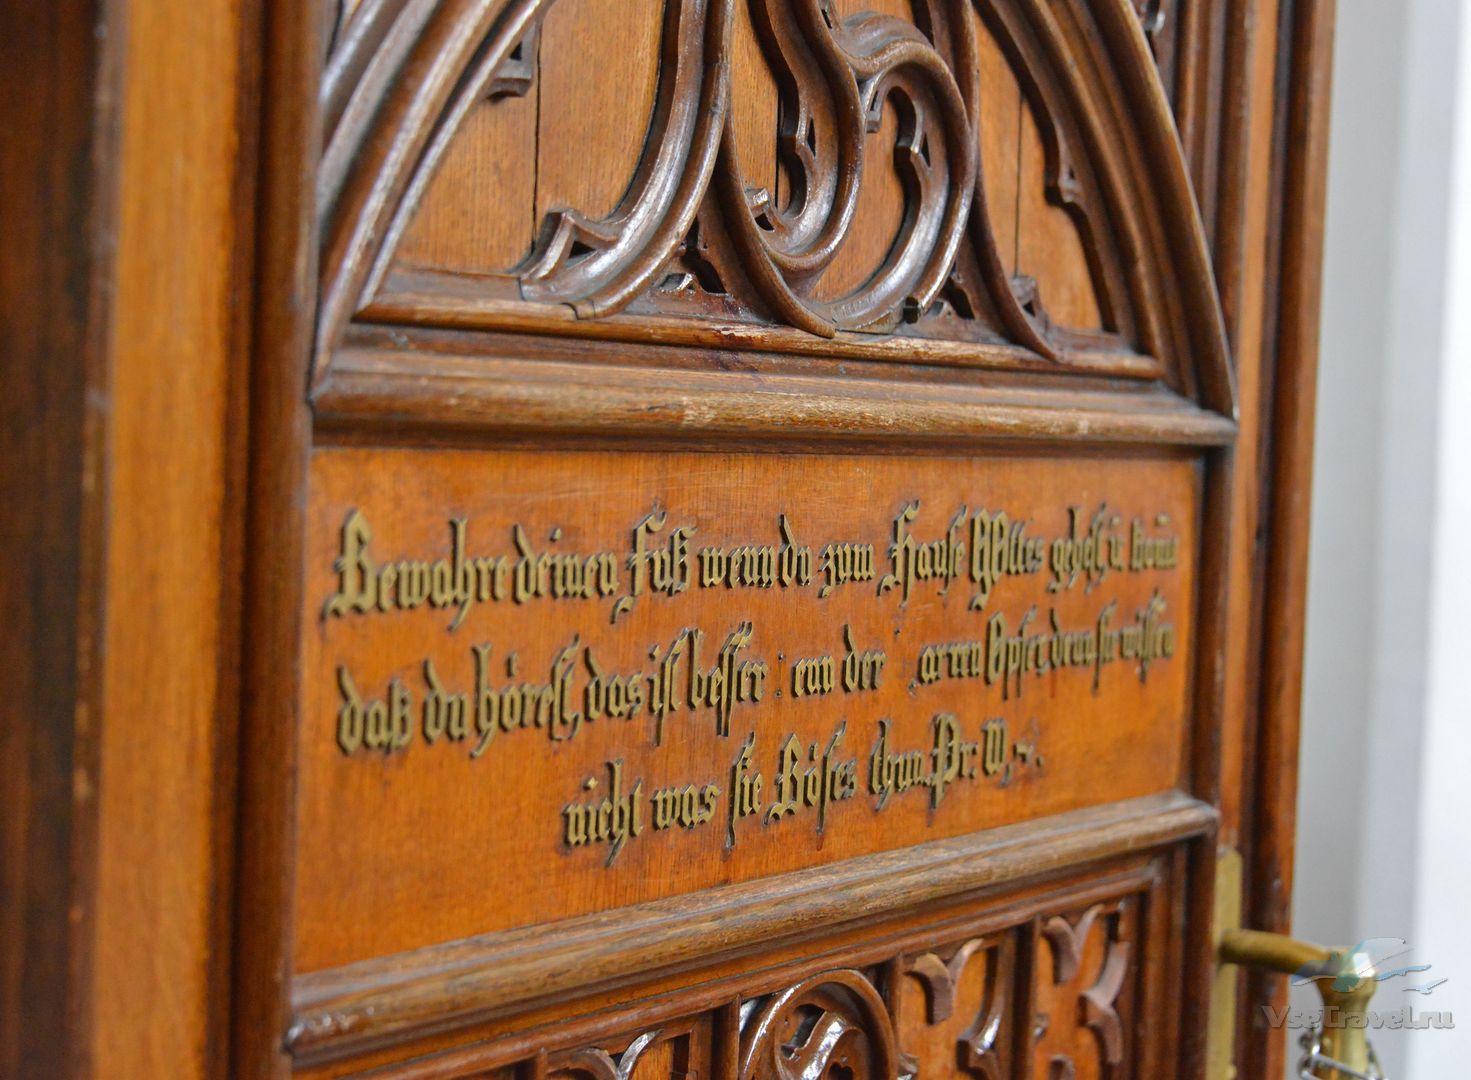 Bewahre deinen Fuß wenn du zum Hause GOttes gehest, u. kom̄
daß du hörest, das ist besser : enn der arren Opfer, denn sie wissen
nicht was sie Böses thun. Pr.
VseTravel.ru